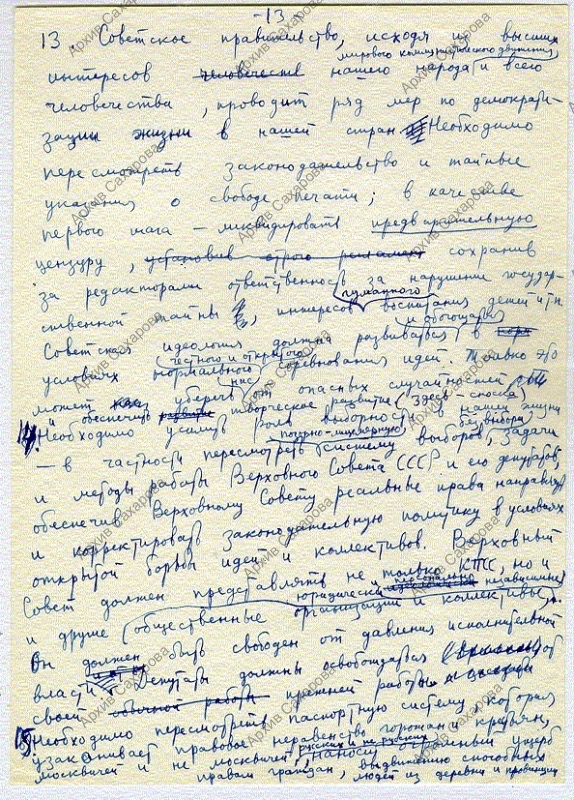 -13-
13. Советское правительство, исходя из высших
мирового коммунистического движения
интересов человечества нашего народа и всего
человечества, проводит ряд мер по демократи-
зации жизни в нашей стран Необходимо
пересмотреть законодательство и тайные
указания о свободе печати; в качестве
первого шага - ликвидировать предварительную
цензуру, установив строго регламент сохранив
за редакторами ответственность за нарушение государ-
гуманного
ственной тайны, интересов воспитания детей и тп
и обогощаться
Советская идеология должна развиваться в
честного и открытого
условиях нормального соревнования идей. Только это
нас
может уберечь от опасных случайностей
и обеспечить развитие творческое развитие (Здесь - сноска)
14. Необходимо усилить роль выборности в нашей жизни
без выбора
погорно-мнжрную
- в частности пересмотреть систему выборов, задачи
и методы работы Верховного Совета СССР и его депутатов,
обеспечив Верховному Совету реальные права направлять
и корректировать законодательную политику в условиях
открытой борьбы идей и коллективов. Верховный
Совет должен представлять не только КПСС, но и
юридически независимые
и другие общественные организации и коллективы,
Он должен быть свободен от давления исполнительной
власти. Депутаты должны освобождаться от
своей обычной работы прежней работы
15) Необходимо пересмотреть паспортную систему, которая
узаконивает правовое неравенство горожан и крестьян,
русских и не русских
москвичей и не москвичей, наносит огромный ущерб
правам граждан, выдвижению способных
людей из деревни и провинции
Архив Сахарова